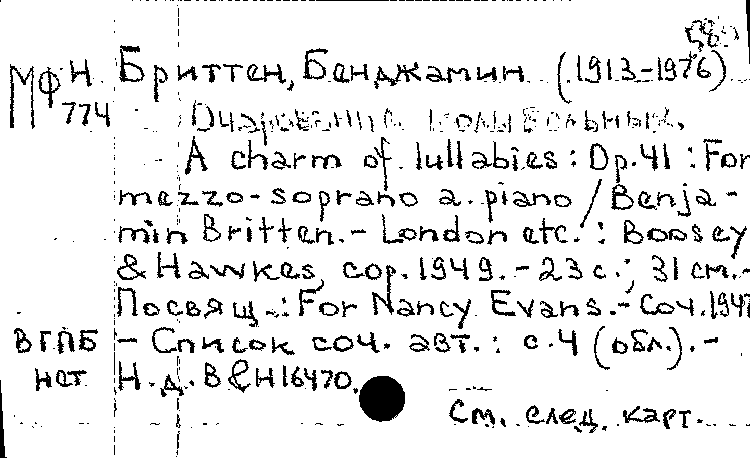 580
МФ Н Бриттен, Бенджамин (1913-1976)
774 Очарование колыбельных.
A charm of lullabies : Op.41 : For
mezzo-soprano a. piano / Benja-
min Britten. - London etc. : Boosey
& Hawkes, cop. 1949. - 23 с. ; 31 см. -
Посвящ.: For Nancy Evans. - Соч. 1947
ВГПБ - Список соч. авт. : с.4 (обл.). -
нет Н.д. B & H 16470.
См. след. карт.